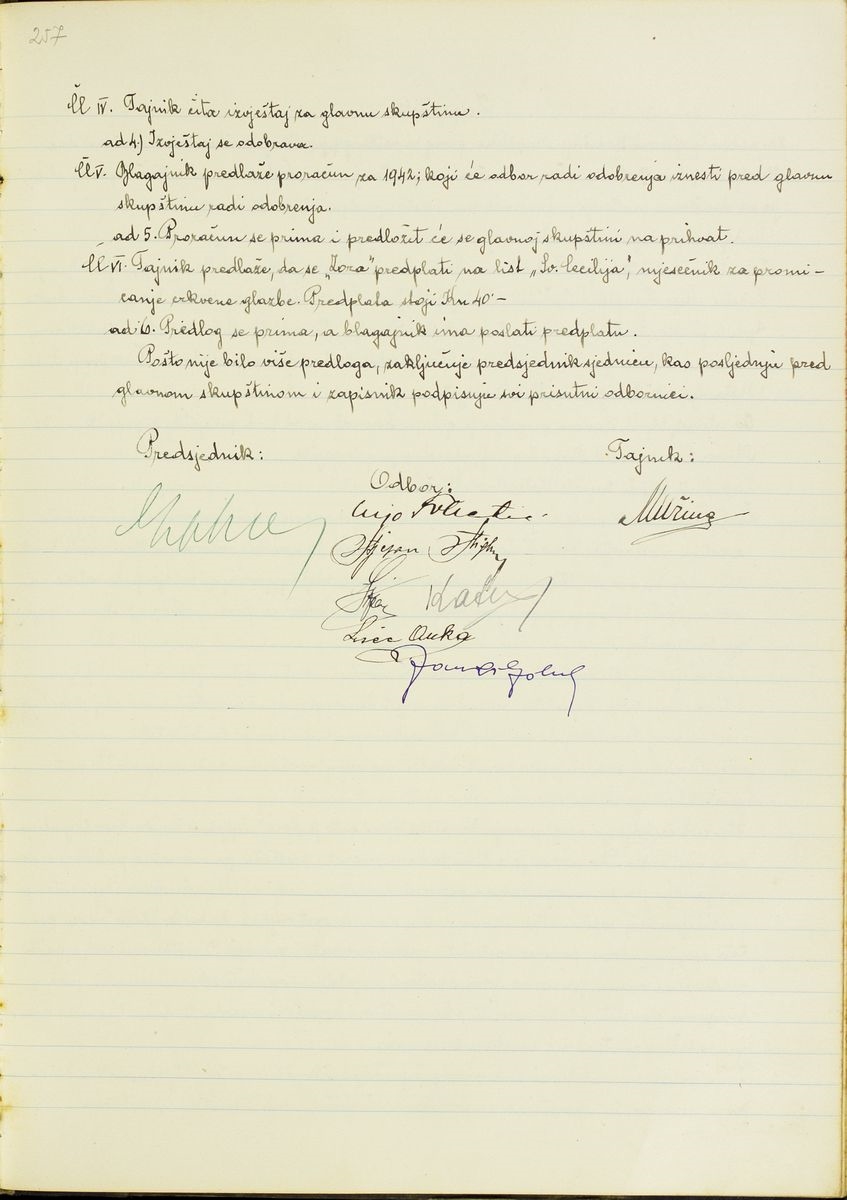 257
Čl IV. Tajnik čita izvještaj za glavnu skupštinu.
ad 4.) Izvještaj se odobrava.
Čl V. Blagajnik predlaže proračun za 1942; koji će odbor radi odobrenja iznesti pred glavnu
skupštinu radi odobrenja.
ad 5. Proračun se prima i predložit će se glavnoj skupštini na prihvat.
Čl VI. Tajnik predlaže, da se „Zora" predplati na list „Sv. Cecilija", mjesečnik za promi-
canje crkvene glazbe. Predplata stoji Kn 40·-
ad 6. Predlog se prima, a blagajnik ima poslati predplatu.
Pošto nije bilo više predloga, zaključuje predsjednik sjednicu, kao posljednju pred
glavnom skupštinom i zapisnik podpisuju svi prisutni odbornici.
Predsjednik:
Tajnik:
Odbor:
Stjepan
Anka